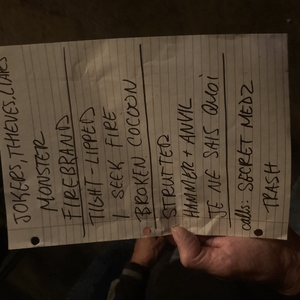 JOKERS, THIEVES, LIARS
MONSTER
FIREBRAND
TIGHT-LIPPED
I SEEK FIRE
BROKEN COCOON
STRUTTER
HAMMER + ANVIL
JE NE SAIS QUOI
calls: SECRET MEDZ
TRASH